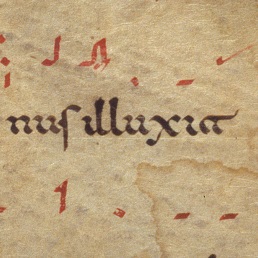 nus illuxit